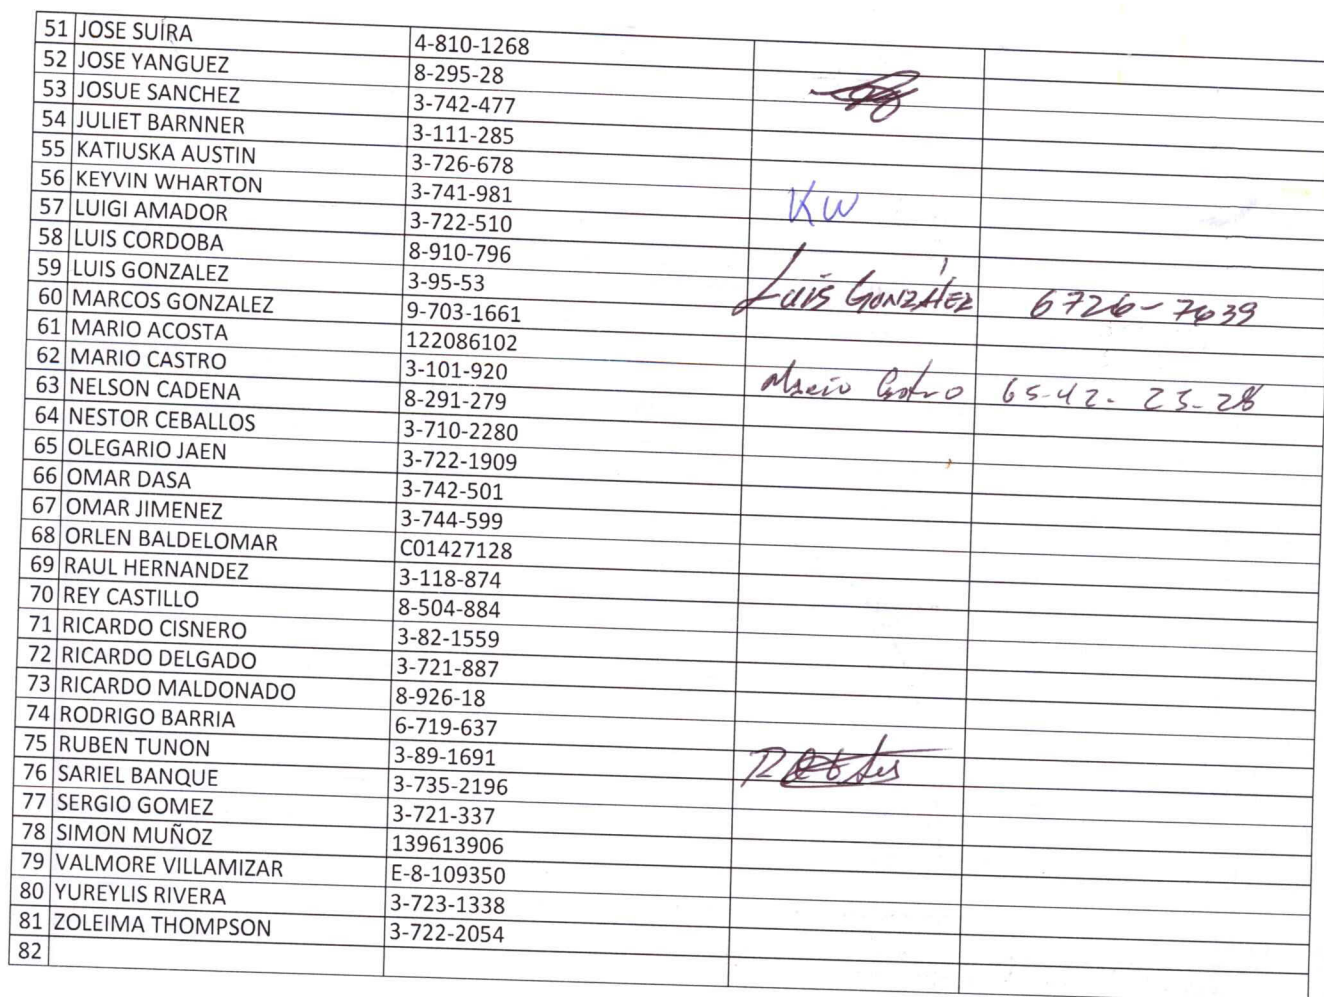 51 JOSE SUÍRA 4-810-1268
52 JOSE YANGUEZ 8-295-28
53 JOSUE SANCHEZ 3-742-477
54 JULIET BARNNER 3-111-285
55 KATIUSKA AUSTIN 3-726-678
56 KEYVIN WHARTON 3-741-981 KW
57 LUIGI AMADOR 3-722-510
58 LUIS CORDOBA 8-910-796
59 LUIS GONZALEZ 3-95-53 Luis GONZÁlEZ 6726-7639
60 MARCOS GONZALEZ 9-703-1661
61 MARIO ACOSTA 122086102
62 MARIO CASTRO 3-101-920 Mario Castro 65-42-23-28
63 NELSON CADENA 8-291-279
64 NESTOR CEBALLOS 3-710-2280
65 OLEGARIO JAEN 3-722-1909
66 OMAR DASA 3-742-501
67 OMAR JIMENEZ 3-744-599
68 ORLEN BALDELOMAR C01427128
69 RAUL HERNANDEZ 3-118-874
70 REY CASTILLO 8-504-884
71 RICARDO CISNERO 3-82-1559
72 RICARDO DELGADO 3-721-887
73 RICARDO MALDONADO 8-926-18
74 RODRIGO BARRIA 6-719-637
75 RUBEN TUNON 3-89-1691
76 SARIEL BANQUE 3-735-2196
77 SERGIO GOMEZ 3-721-337
78 SIMON MUÑOZ 139613906
79 VALMORE VILLAMIZAR E-8-109350
80 YUREYLIS RIVERA 3-723-1338
81 ZOLEIMA THOMPSON 3-722-2054
82